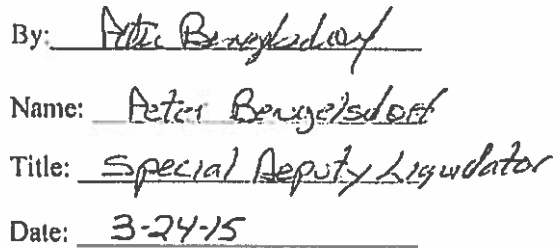 By: Peter Bengelsdorf
Name: Peter Bengelsdorf
Title: Special Deputy Liquidator
Date: 3-24-15